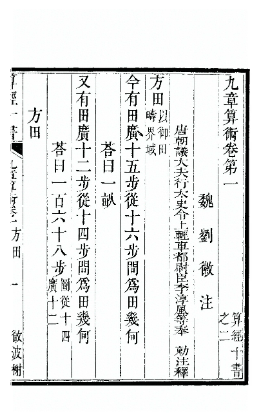 九章算術卷第一
算經十書
之二
魏劉徽注
唐朝議大夫行太史令上輕車都尉臣李淳風等奉 勅注釋
方田以御田
疇界域
今有田廣十五步從十六步問爲田幾何
荅曰一畝
又有田廣十二步從十四步問爲田幾何
荅曰一百六十八步圖從十四
廣十二
方田
算經十書
九章算術卷一 方田
一
微波榭